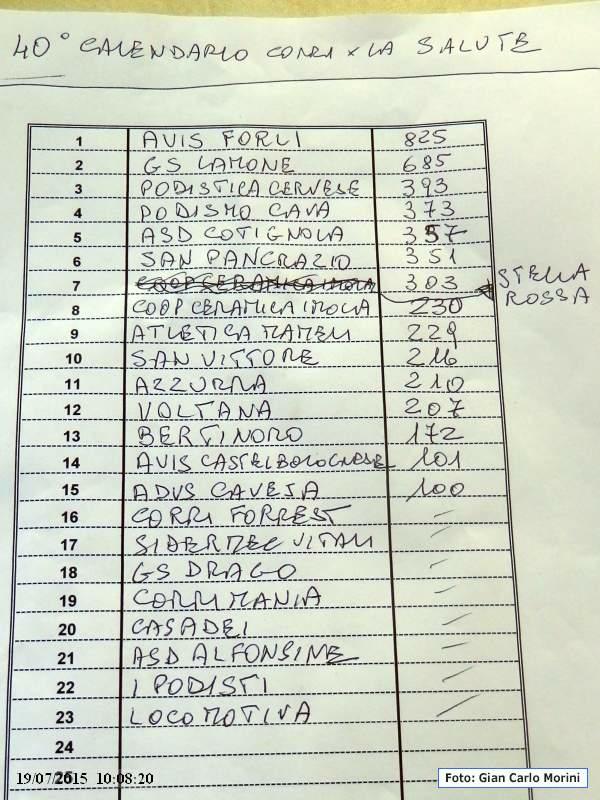 40° CALENDARIO CORRI x LA SALUTE
1 AVIS FORLI 825
2 GS LAMONE 685
3 PODISTICA CERVESE 393
4 PODISMO CAVA 373
5 ASD COTIGNOLA 357
6 SAN PANCRAZIO 351
7 COOP CERAMICA IMOLA 303 STELLA ROSSA
8 COOP CERAMICA IMOLA 230
9 ATLETICA MAMELI 229
10 SAN VITTORE 216
11 AZZURRA 210
12 VOLTANA 207
13 BERTINORO 172
14 AVIS CASTELBOLOGNESE 101
15 ADVS CAVEJA 100
16 CORRI FORREST –
17 SIDERMEC VITALI –
18 GS DRAGO –
19 CORRIMANIA –
20 CASADEI –
21 ASD ALFONSINE –
22 I PODISTI –
23 LOCOMOTIVA –
24
25
19/07/2015 10:08:20
Foto: Gian Carlo Morini